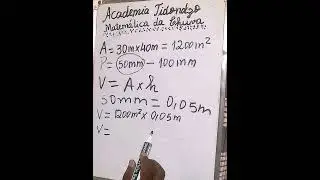 Academia Tidondzo
Matemática da Chuva
A = 30m x 40m = 1200m²
P = 50mm - 100mm
V = A x h
50mm = 0,05m
V = 1200m² x 0,05m
V =